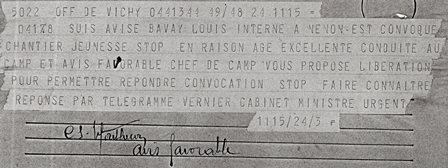 5022 OFF DE VICHY 0441344 49/48 24 1115 =
04178 SUIS AVISE BAVAY LOUIS INTERNE A NENON-EST CONVOQUE
CHANTIER JEUNESSE STOP EN RAISON AGE EXCELLENTE CONDUITE AU
CAMP ET AVIS FAVORABLE CHEF DE CAMP VOUS PROPOSE LIBERATION
POUR PERMETTRE REPONDRE CONVOCATION STOP FAIRE CONNAITRE
REPONSE PAR TELEGRAMME VERNIER CABINET MINISTRE URGENT
1115/24/3 =
avis favorable